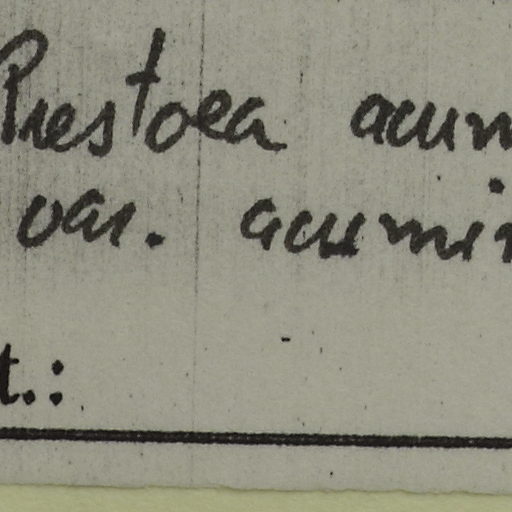 Prestoea acum
var. acumin
t.: